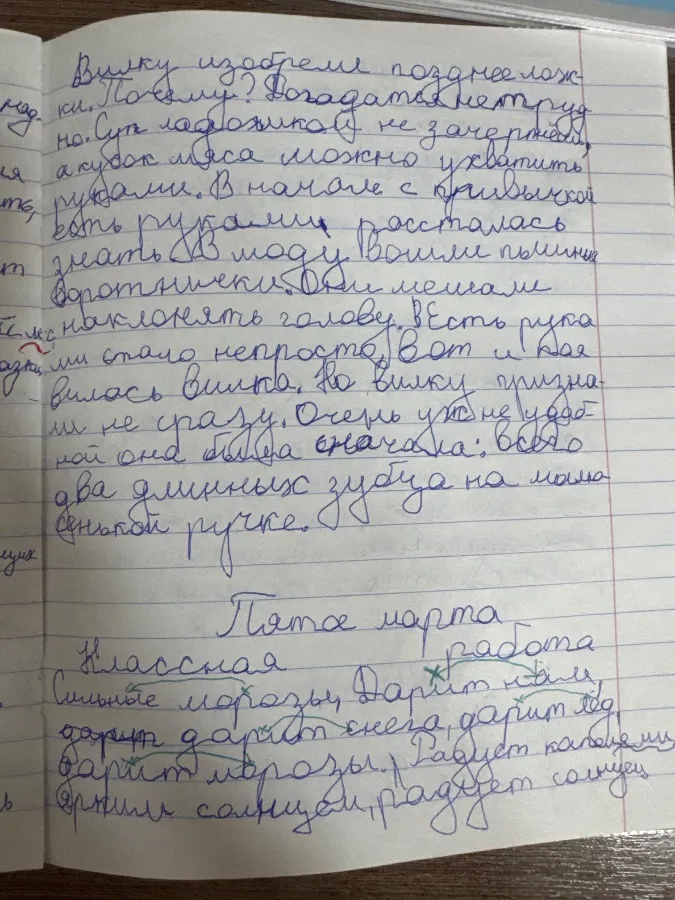 Вилку изобрели позднее лож-
ки. Почему? Догадаться нетруд
но. Суп ладошкой не зачерпнёшь,
а кусок мяса можно ухватить
руками. В начале с привычкой
есть руками рассталась
знать. В моду вошли пышные
воротнички. Они мешали
наклонять голову. Есть рука
ми стало непросто, Вот и поя
вилась вилка. Но вилку призна-
ли не сразу. Очень уж не удоб-
ной она была сначала: всего
два длинных зубца на мале
сенькой ручке.
Пятое марта
Классная работа
Сильные морозы, Дарит нам,
дарит снега, дарит лёд,
дарит морозы. Радует капелями,
ярким солнцем, радует солнцем